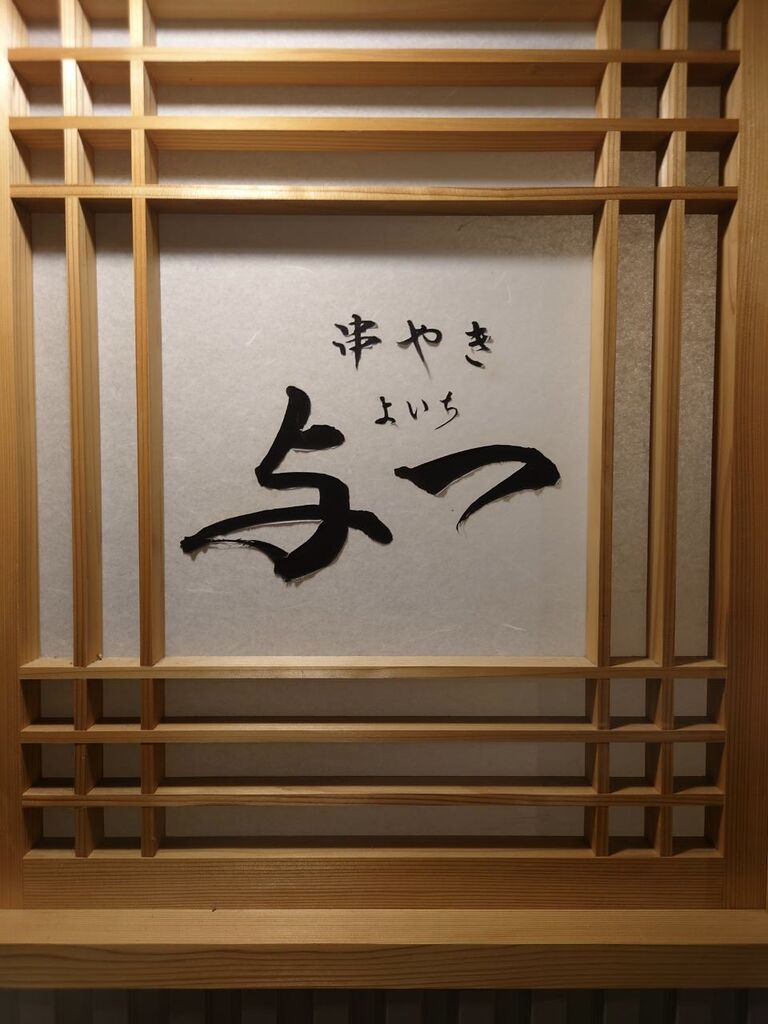 串やき
よいち
与一